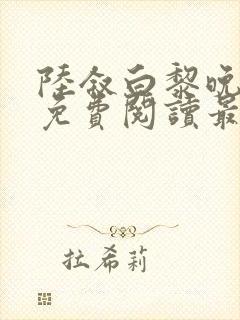 陸敘白黎晚
免費閱讀最
拉希莉